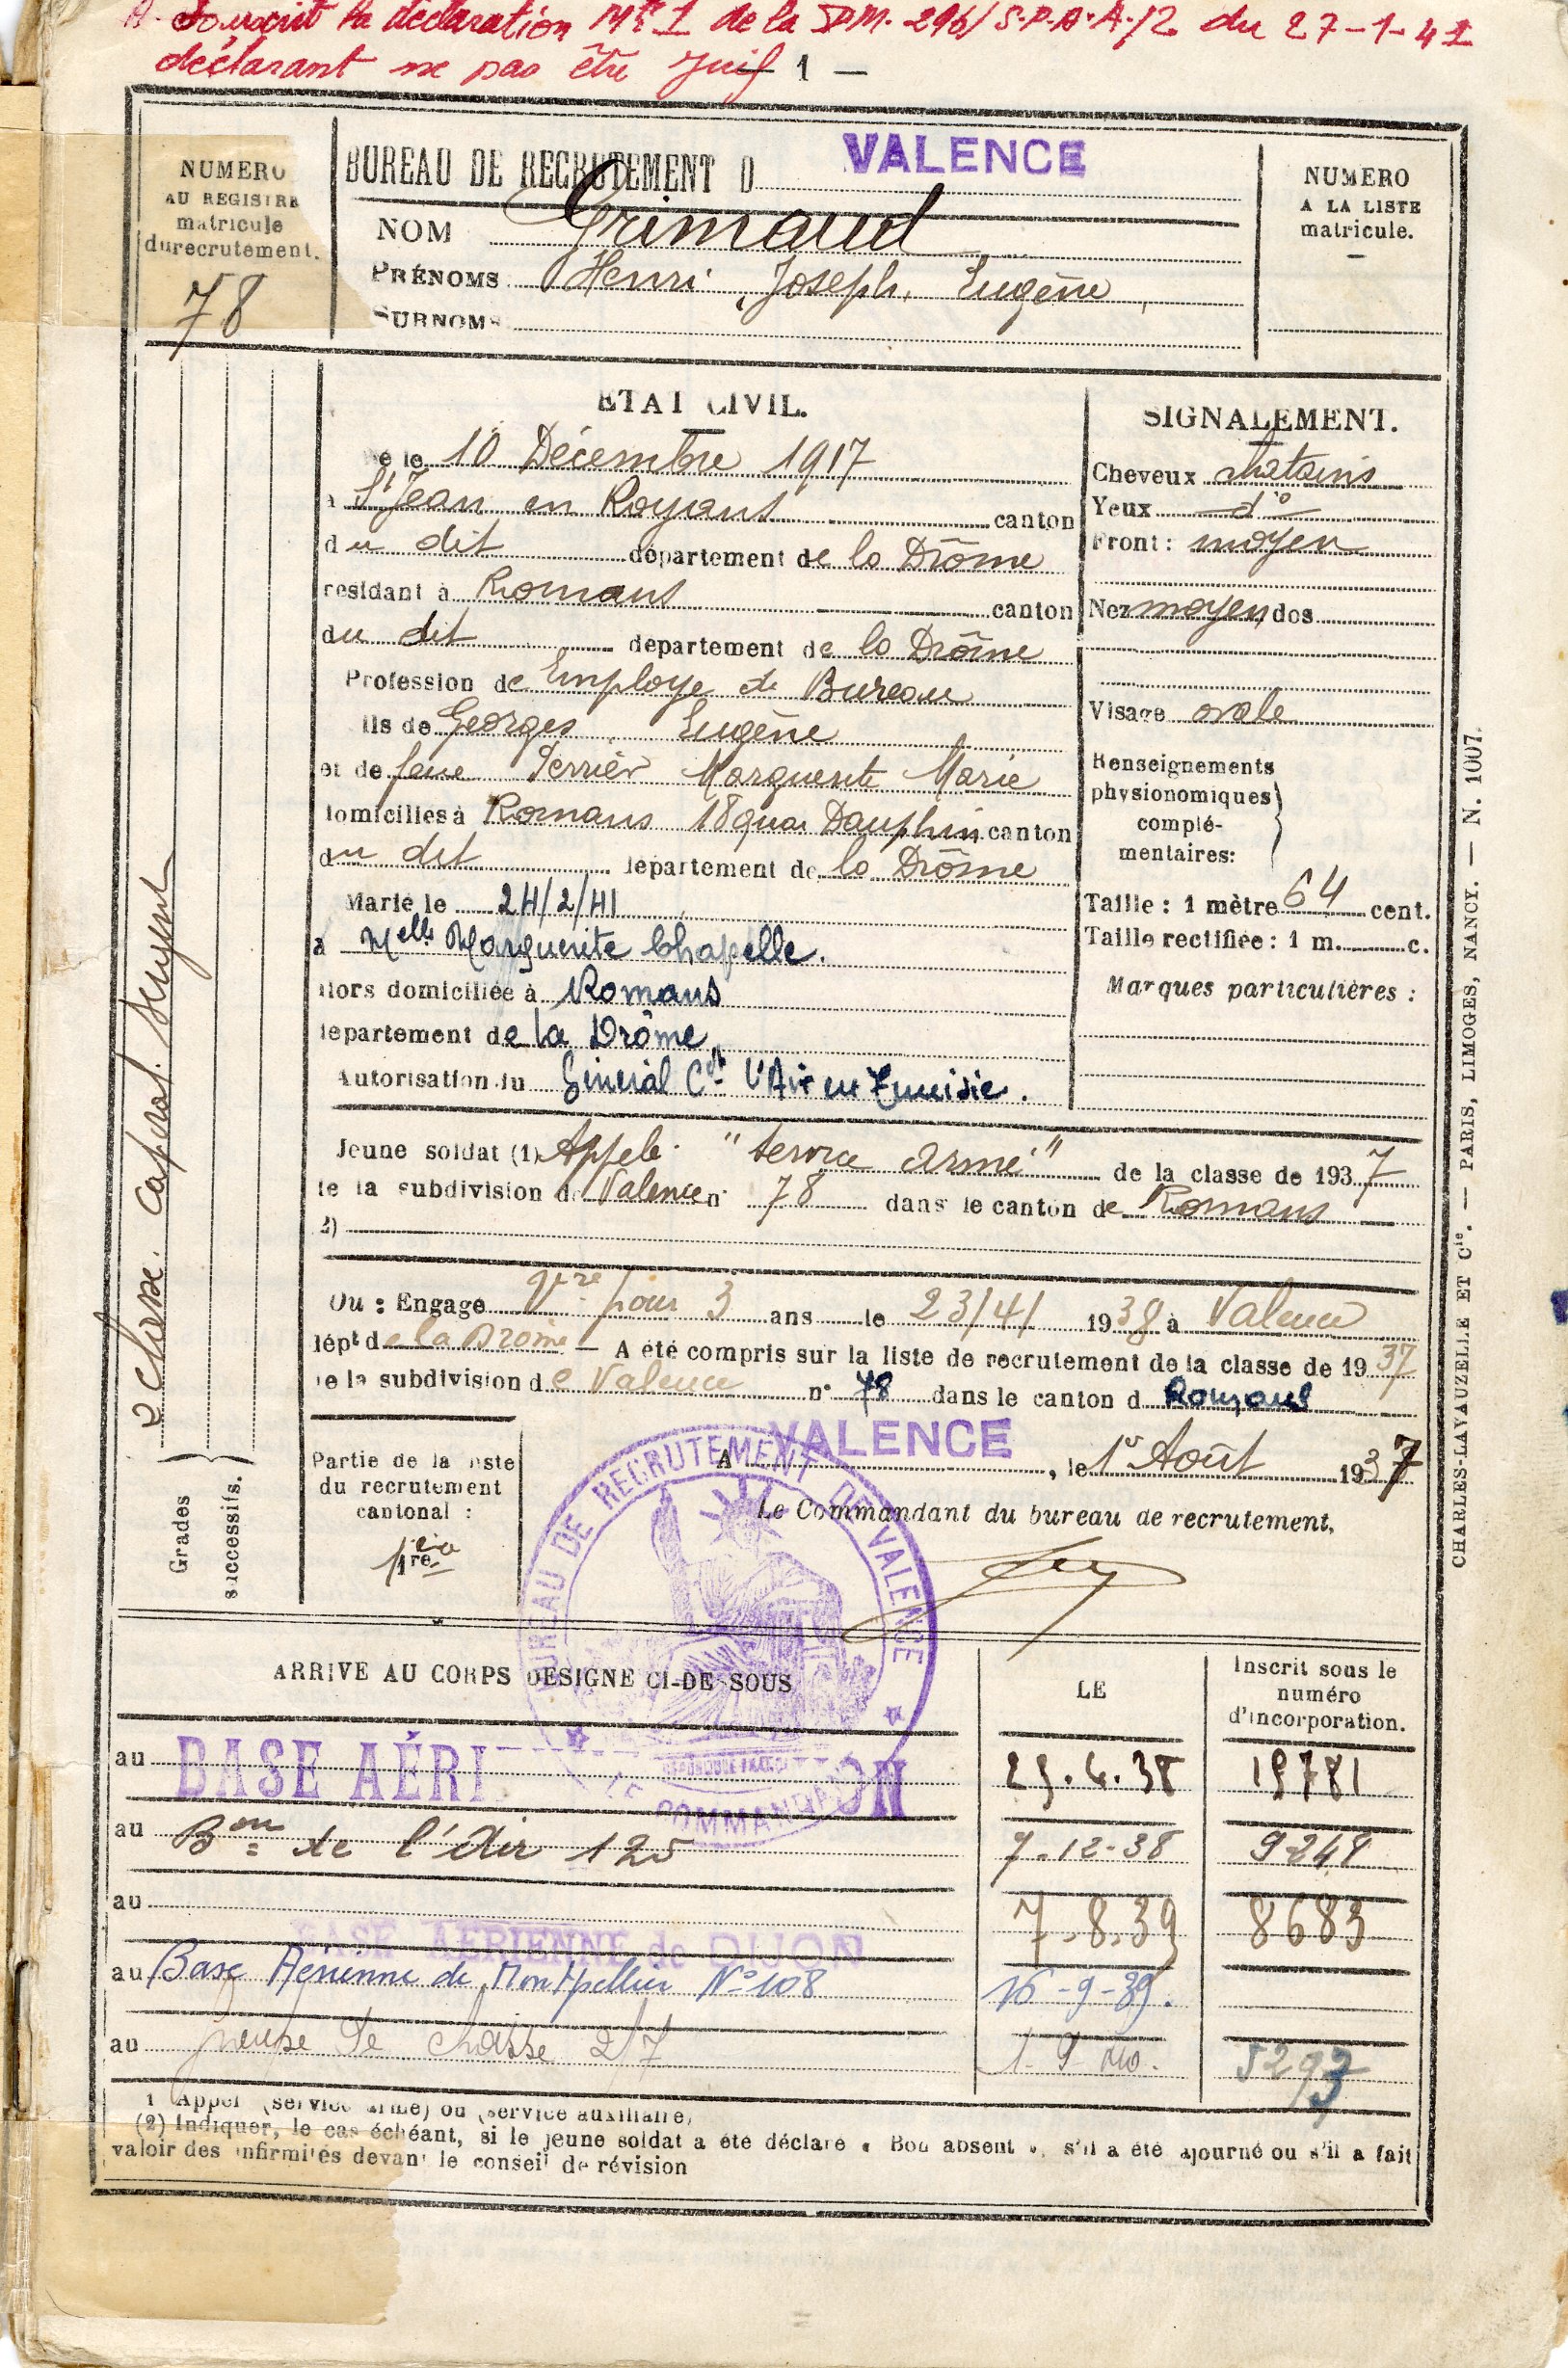 A souscrit la déclaration Mle 1 de la DM. 296/S.P.A.A./2 du 27-1-41
déclarant ne pas être Juif
— 1 —
NUMERO
AU REGISTRE
matricule
du recrutement.
78
BUREAU DE RECRUTEMENT D VALENCE
NOM Grimaud
PRÉNOMS Henri, Joseph, Eugène,
SURNOMS
NUMERO
A LA LISTE
matricule.
ETAT CIVIL.
é le 10 Décembre 1917
à St Jean en Royans canton
du dit département de la Drôme
résidant à Romans canton
du dit département de la Drôme
Profession de Employé de Bureau
ils de Georges, Eugène
et de feue Perrier Marguerite Marie
domiciliés à Romans 18 quai Dauphin canton
du dit département de la Drôme
Marié le 24/2/41
à Melle Marguerite Chapelle.
alors domiciliée à Romans
département de la Drôme
Autorisation du Général Ct l'Air en Tunisie.
SIGNALEMENT.
Cheveux chatains
Yeux d°
Front : moyen
Nez moyen dos
Visage ovale
Renseignements
physionomiques
complé-
mentaires:
Taille : 1 mètre 64 cent.
Taille rectifiée : 1 m. c.
Marques particulières :
Jeune soldat (1) Appelé "Service armé" de la classe de 1937
de la subdivision de Valence n° 78 dans le canton de Romans
2)
Ou : Engagé Vre pour 3 ans le 23/4/ 1938 à Valence
dépt de la Drôme — A été compris sur la liste de recrutement de la classe de 1937
de la subdivision de Valence n° 78 dans le canton d Romans
Grades
successifs.
2e classe. caporal.
Partie de la liste
du recrutement
cantonal :
1re
A VALENCE, le 1er Août 1937
Le Commandant du bureau de recrutement,
BUREAU DE RECRUTEMENT DE VALENCE
LE COMMANDANT
ARRIVE AU CORPS DESIGNE CI-DESSOUS
LE
Inscrit sous le
numéro
d'incorporation.
au BASE AÉRI ON 25.4.38 19781
au Bon de l'Air 125 7-12-38 9248
au BASE AERIENNE de DIJON 7.8.39 8683
au Base Aérienne de Montpellier N° 108 16-9-39.
au Groupe de chasse 2/7 1-9-40. 5293
1 Appel (service armé) ou (service auxiliaire)
(2) Indiquer, le cas échéant, si le jeune soldat a été déclaré « Bon absent », s'il a été ajourné ou s'il a fait
valoir des infirmités devant le conseil de révision
CHARLES-LAVAUZELLE ET Cie. — PARIS, LIMOGES, NANCY. — N. 1007.